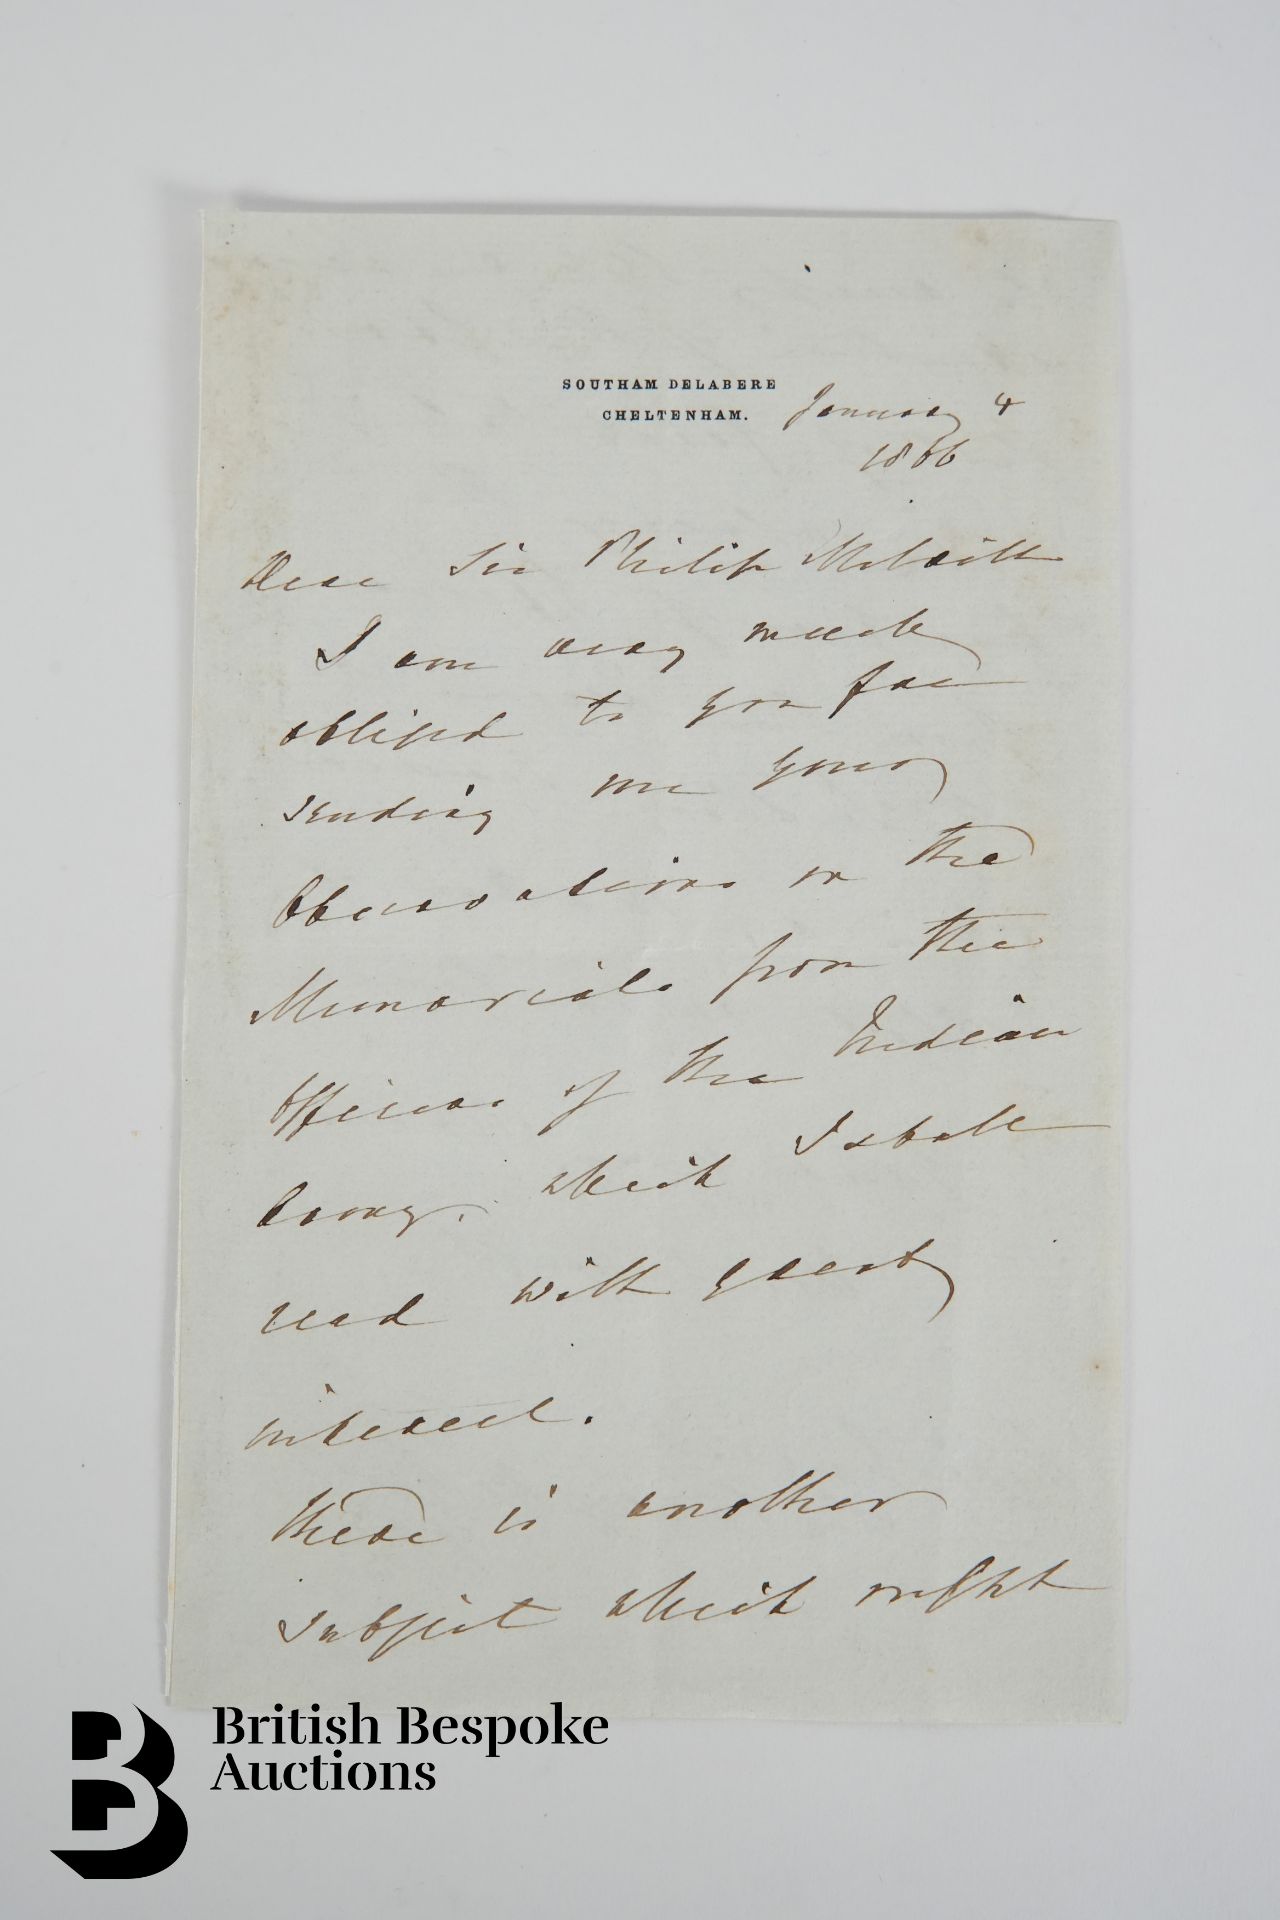 SOUTHAM DELABERE
CHELTENHAM.
January 4
1866
Dear Sir Philip Melvill
I am very much
obliged to you for
sending me your
Observations on the
Memorials from the
Officers of the Indian
Army. which I shall
read with great
interest.
there is another
subject which might
British Bespoke
Auctions